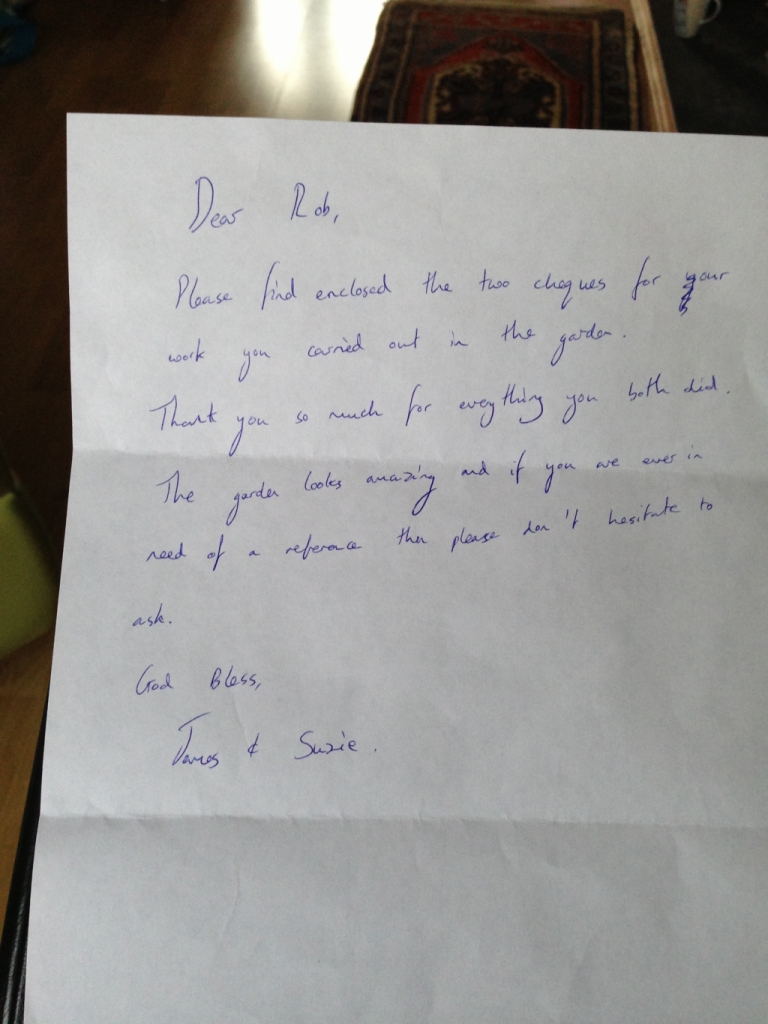 Dear Rob,
Please find enclosed the two cheques for your
work you carried out in the garden.
Thank you so much for everything you both did.
The garden looks amazing and if you are ever in
need of a reference then please don't hesitate to
ask.
God Bless,
James & Suzie.